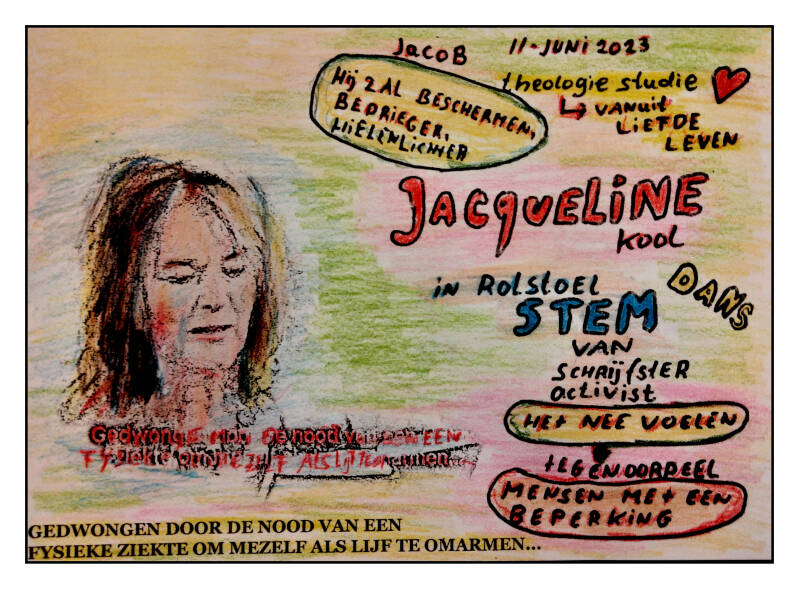 JacoB
11-JUNI 2023
HIJ ZAL BESCHERMEN,
BEDRIEGER,
HIELENLICHTER
theologie studie
VANUIT
LIEFDE
LEVEN
JACQUELINE
KOOL
IN ROLSTOEL
DANS
STEM
VAN
SCHRIJfSTER
activist
HET NEE VOELEN
TEGENOORDEEL
MENSEN MET EEN
BEPERKING
Gedwong door de nood van EEN
Fysiekte om me zelf ALS LIJf te omarmen
GEDWONGEN DOOR DE NOOD VAN EEN
FYSIEKE ZIEKTE OM MEZELF ALS LIJF TE OMARMEN...